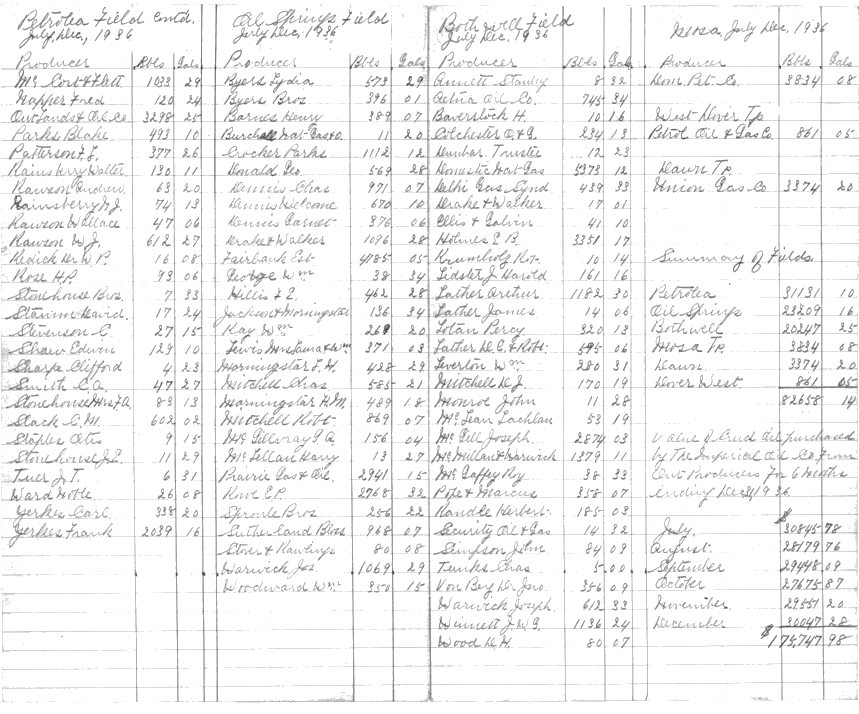 Petrolea Field Contd.
July, Dec., 1936
Producer Bbls Gals
Mc Cort & Flett 1033 29
Napper Fred 120 24
Out Lands & Oil Co 3298 25
Parks Blake 493 10
Patterson F. J. 377 26
Rainsberry Walter 130 11
Rawson Andrew 63 20
Rainsberry W. J. 74 13
Rawson Wallace 47 06
Rawson W J. 612 27
Redick Dr W P. 16 08
Rose H.P. 93 06
Stonehouse Bros. 7 33
Stanime David. 17 24
Stevenson C. 27 15
Shaw Edwin 129 10
Sharpe Clifford 4 23
Smith C. A. 47 27
Stonehouse Mrs F.A. 83 13
Slack C. M. 602 02
Staples Otis 9 15
Stonehouse J. E. 11 29
Tuer J. T. 6 31
Ward 26 08
Yerkes Carl 338 20
Yerkes Frank 2039 16
Oil Springs Field
July Dec, 1936
Producer Bbls Gals
Byers Lydia 573 29
Byers Bros 396 01
Barnes Henry 389 07
Nat Gas & O. 11 20
Crocker Parks 1112 12
Donald Geo. 569 28
Dennis Chas 971 07
Dennis Welcome 670 10
Dennis Garnet 376 06
Drake & Walker 1096 28
Fairbank Est 4785 05
George Wm 38 34
Hillis & E. 462 28
Jackson & Morningstar 136 34
Kay Wm 269 20
Lewis Mrs Laura & Wm 371 03
Morningstar L. H. 428 29
Mitchell Chas 585 21
Morningstar H. M. 489 18
Mitchell Robt. 869 07
Mc Gillvray 156 04
Mc Lellan Harry 13 27
Prairie Gas & Oil. 2941 15
Rowe E.P. 2768 32
Sproule Bros 256 22
Sutherland Bros 968 07
Stover & Rawlings 80 08
Warwick Jos. 1069 29
Woodward Wm 350 15
Bothwell Field
July Dec, 1936
Producer Bbls Gals
Annett Stanley 8 32
Aetna Oil Co. 745 34
Baverstock H. 10 16
Colchester O. & G. 234 13
Dunbar. Trustee 12 23
Domestic Nat Gas 5373 12
Delhi Gas Synd 439 33
Drake & Walker 17 01
Ellis & Galvin 41 10
Holmes E. B. 3351 17
Krumholz Rot. 10 14
Lidster J Harold 161 16
Lather Arthur 1182 30
Lather James 14 06
Lotan Percy 320 13
Lather D. C. & Robt. 595 06
Leverton Wm 280 31
Mitchell D. J 170 19
Monroe John 11 28
Mc Lean Lachlan 53 19
Mc Gill Joseph. 2874 03
Mc Millan & Warwick 1379 11
Mc Gaffey Roy 38 33
Pope & Marcus 358 07
Randle Herbert. 185 03
Security Oil & Gas 14 32
Simpson John 84 09
Tunks Chas 5 00
Von Bey Dr Jno. 356 09
Warwick Joseph. 612 33
Winnett J W G. 1136 24
Wood D. H. 80 07
Mosa, July Dec, 1936
Producer Bbls Gals
Dom. Pet. Co. 3834 08
West Dover Tp
Petrol Oil & Gas Co. 861 05
Dawn Tp.
Union Gas Co 3374 20
Summary of Fields.
Petrolea 31131 10
Oil Springs 23209 16
Bothwell 20247 25
Mosa Tp. 3834 08
Dawn 3374 20
Dover West 861 05
82658 14
Value of Crud Oil purchased
by The Imperial Oil Co. From
Ont Producers For 6 Months
ending Dec 31, 1936
July. $ 30845 78
August. 28179 76
September 29448 09
October 27675 87
November. 29551 20
December $ 30047 28
175,747 98